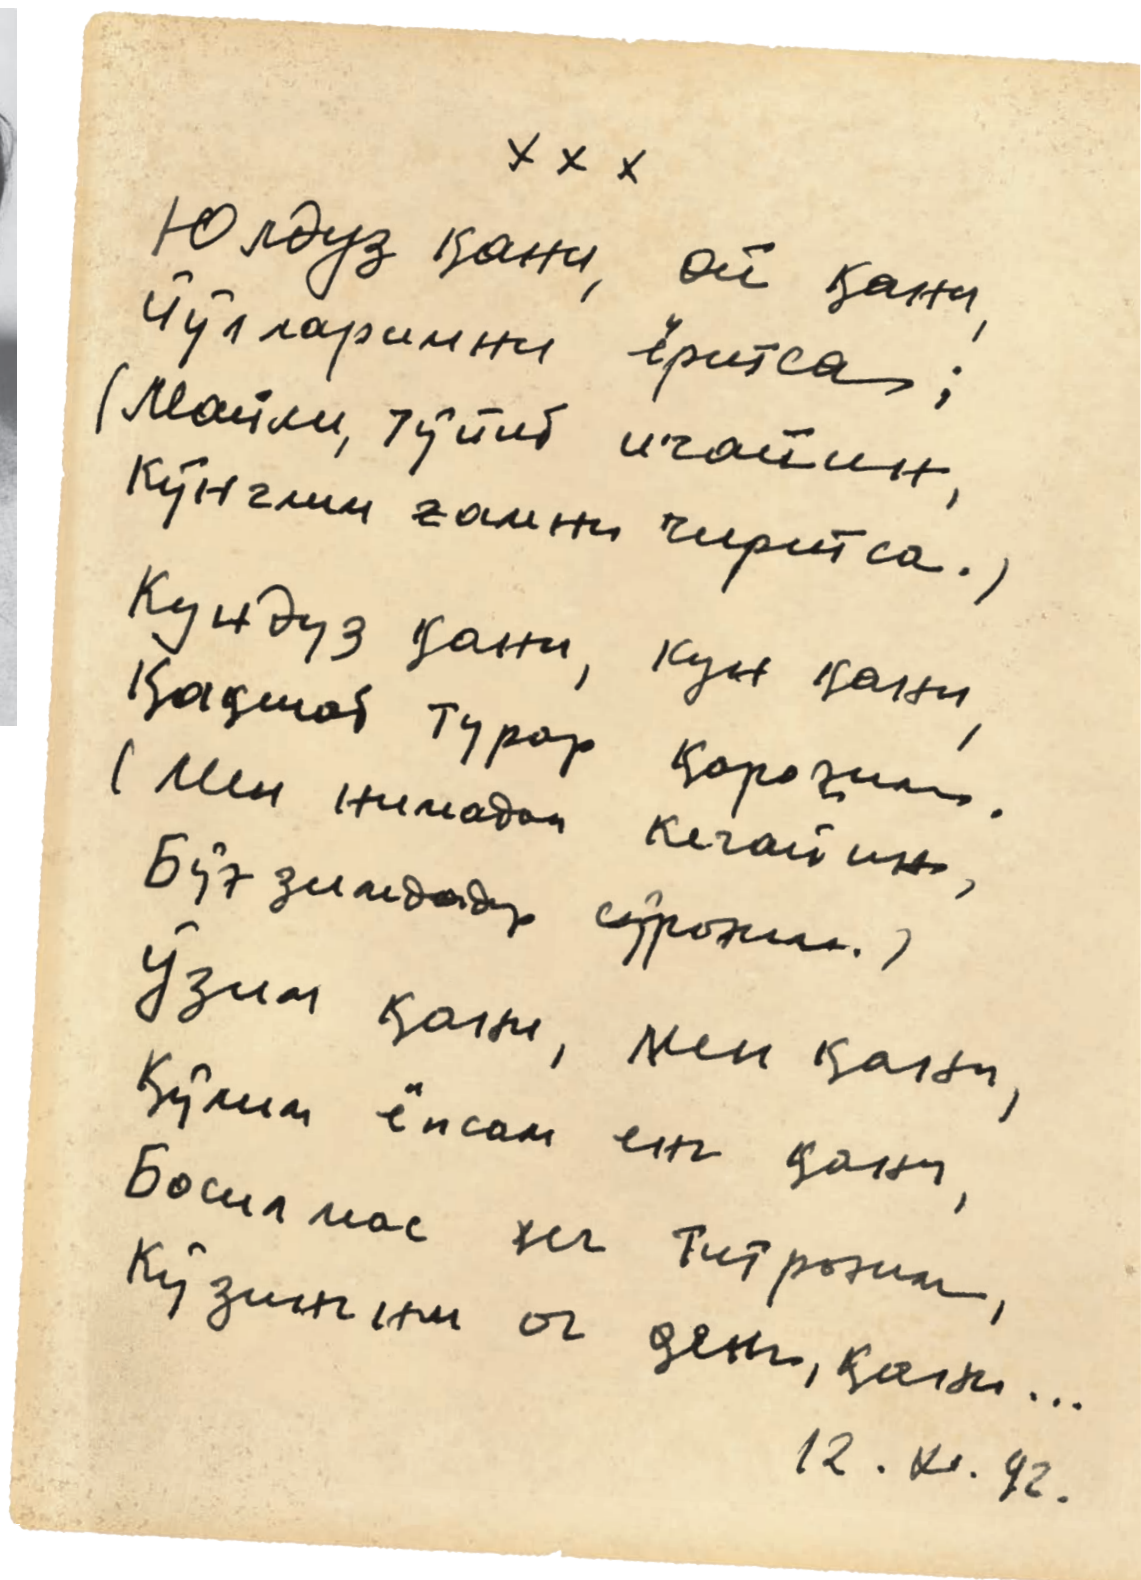 х х х
Юлдуз қани, ой қани,
Йўлларимни ёритса;
(Майли, тўйиб ичайин,
Кўнглим ғамни чиритса.)
Кундуз қани, кун қани,
Қақшаб турар қароғим.
(Мен нимадан кечайин,
Бўғзимдадир сўроғим.)
Ўзим қани, мен қани,
Қўлим ёпсам енг қани,
Босилмас ҳеч титроғим,
Кўзингни оч денг, қани...
12. XI. 92.